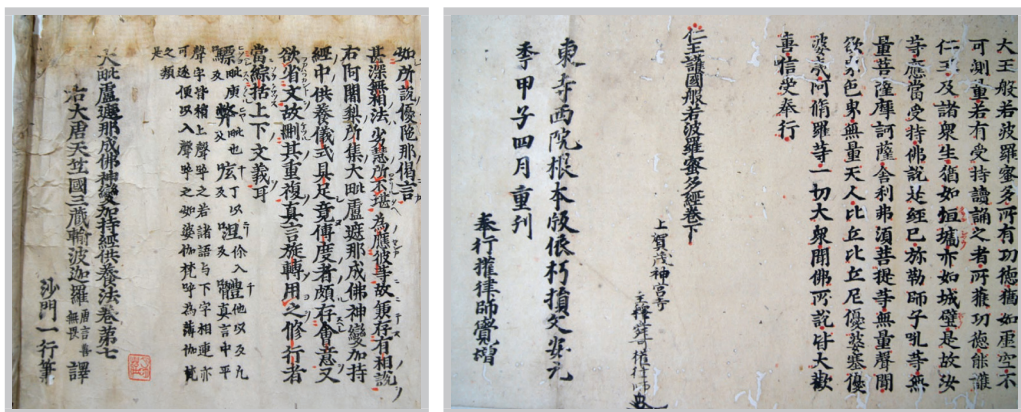 如所説優陀那偈言
甚深無相法劣慧所不堪為應彼等故兼存有相説
右阿闍梨所集大毗盧遮那成佛神變加持
經中供養儀式具足竟傳度者頗存會意又
欲省文故刪其重複真言旋轉用之修行者
當綜括上下文義耳
聲字皆稍上聲呼之若諸語与下字相連亦
可逐便以入聲呼之如婆伽梵呼為薄伽梵
之類
是
大毗盧遮那成佛神變加持經供養法卷第七
大唐天竺國三藏輸波迦羅唐言善無畏譯
沙門一行筆
大王般若波羅蜜多所有功德猶如虛空不
可測量若有受持讀誦之者所獲功德能護
仁王及諸衆生猶如垣墻亦如城壁是故汝
等應當受持佛説此經已弥勒師子吼等無
量菩薩摩訶薩舍利弗須菩提等無量聲聞
欲界色界無量天人比丘比丘尼優婆塞優
婆夷阿脩羅等一切大衆聞佛所説皆大歡
喜信受奉行
仁王護國般若波羅蜜多經卷下
上賀茂神宮寺
東寺西院根本版依朽損文安元
季甲子四月重刊
奉行權律師